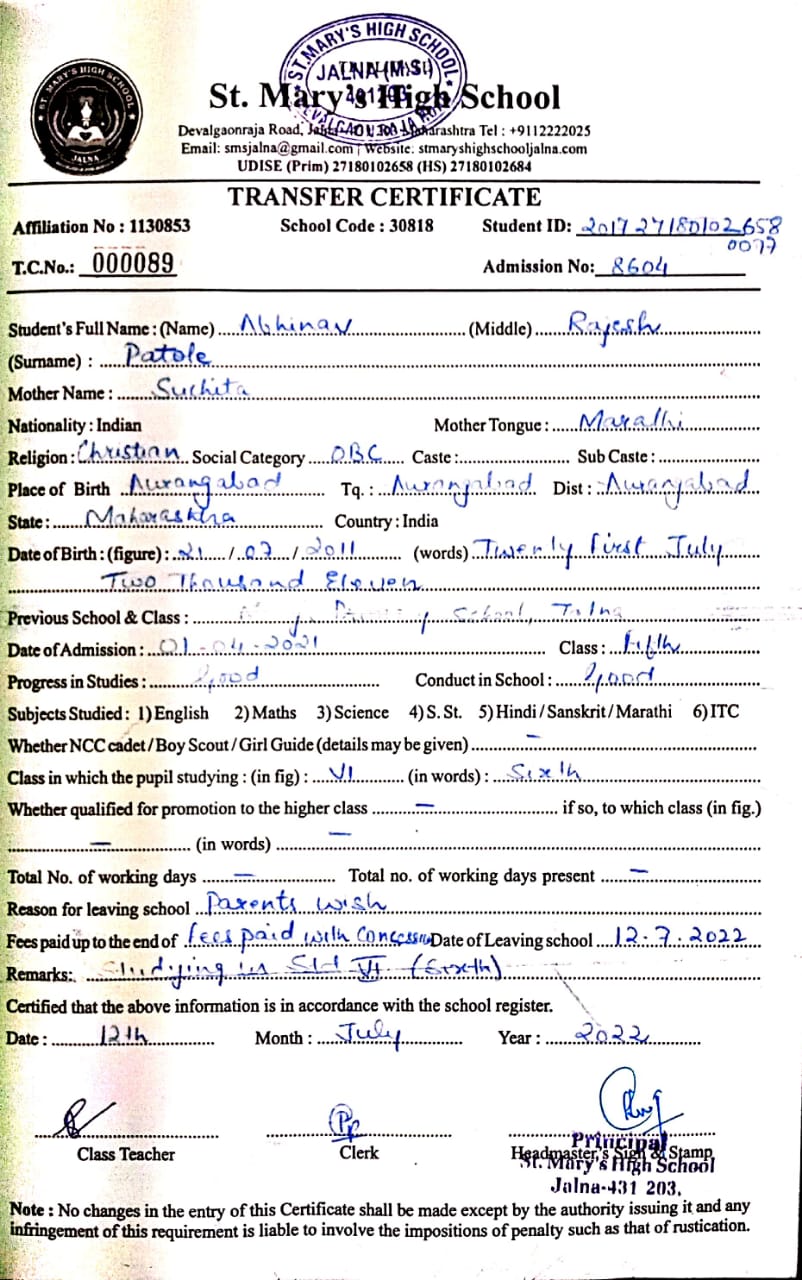 ST. MARY'S HIGH SCHOOL
JALNA (M.S.)
ST. MARY'S HIGH SCHOOL
JALNA
St. Mary's High School
Devalgaonraja Road, Maharashtra Tel : +9112222025
Email: smsjalna@gmail.com | Website: stmaryshighschooljalna.com
UDISE (Prim) 27180102658 (HS) 27180102684
TRANSFER CERTIFICATE
Affiliation No : 1130853 School Code : 30818 Student ID: 2017 27180102658
0077
T.C.No.: 000089 Admission No: 8604
Student's Full Name : (Name) Abhinav (Middle) Rajesh
(Surname) : Patole
Mother Name : Suchita
Nationality : Indian Mother Tongue : Marathi
Religion : Christian Social Category OBC Caste : Sub Caste :
Place of Birth Aurangabad Tq. : Aurangabad Dist : Aurangabad
State : Maharashtra Country : India
Date of Birth : (figure) : 21 / 07 / 2011 (words) Twenty First July
Two Thousand Eleven
Previous School & Class : School, Jalna
Date of Admission : 01-04-2021 Class : Fifth
Progress in Studies : Good Conduct in School : Good
Subjects Studied : 1) English 2) Maths 3) Science 4) S. St. 5) Hindi / Sanskrit / Marathi 6) ITC
Whether NCC cadet / Boy Scout / Girl Guide (details may be given) —
Class in which the pupil studying : (in fig) : VI (in words) : Sixth
Whether qualified for promotion to the higher class — if so, to which class (in fig.)
— (in words) —
Total No. of working days — Total no. of working days present —
Reason for leaving school Parents wish
Fees paid up to the end of fees paid with Concession Date of Leaving school 12.7.2022
Remarks: Studying in Std VI (Sixth)
Certified that the above information is in accordance with the school register.
Date : 12th Month : July Year : 2022
Class Teacher Clerk Headmaster's Sign & Stamp
Principal
St. Mary's High School
Jalna-431 203.
Note : No changes in the entry of this Certificate shall be made except by the authority issuing it and any
infringement of this requirement is liable to involve the impositions of penalty such as that of rustication.